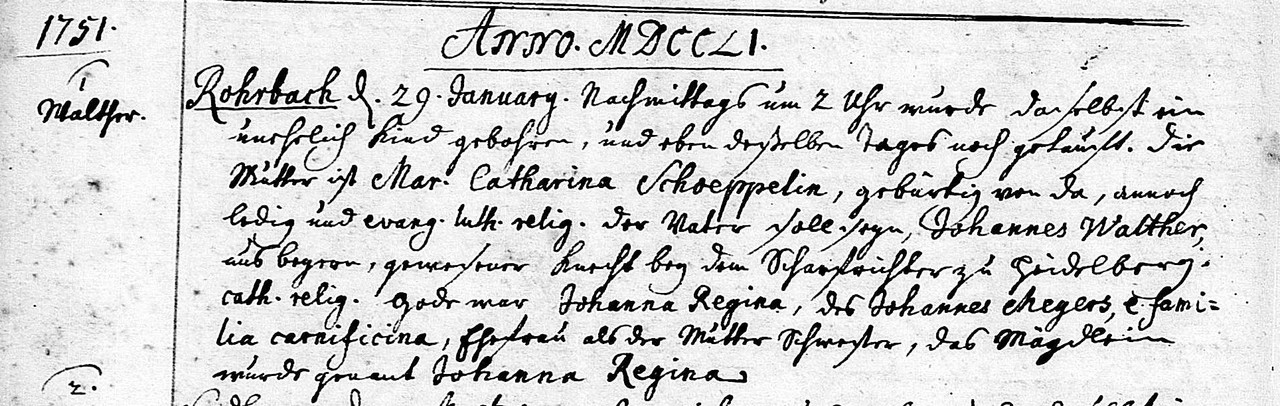 1751.
Anno. MDCCLI.
1
Walther.
Rohrbach d. 29. January. Nachmittags um 2 Uhr wurde daselbst ein
unehelich Kind gebohren, und eben desselben Tages noch getaufft. Die
Mutter ist Mar. Catharina Schoeppelin, gebürtig von da, annoch
ledig und evang. luth. relig. der Vater soll seyn, Johannes Walther,
aus begern, gewesener Knecht bey dem Scharfrichter zu Heidelberg.
cath. relig. Gode war Johanna Regina, des Johannes Meyers, è fami=
lia carnificina, Ehefrau als der Mutter Schwester, das Mägdlein
wurde genant Johanna Regina
2.